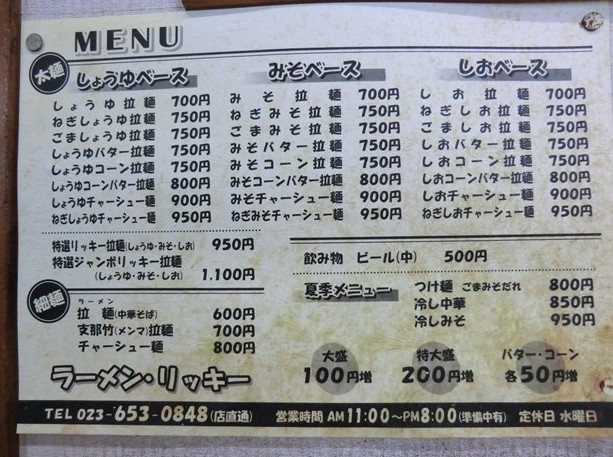 MENU
太麺
しょうゆベース
しょうゆ拉麺 700円
ねぎしょうゆ拉麺 750円
ごましょうゆ拉麺 750円
しょうゆバター拉麺 750円
しょうゆコーン拉麺 750円
しょうゆコーンバター拉麺 800円
しょうゆチャーシュー麺 900円
ねぎしょうゆチャーシュー麺 950円
みそベース
みそ拉麺 700円
ねぎみそ拉麺 750円
ごまみそ拉麺 750円
みそバター拉麺 750円
みそコーン拉麺 750円
みそコーンバター拉麺 800円
みそチャーシュー麺 900円
ねぎみそチャーシュー麺 950円
しおベース
しお拉麺 700円
ねぎしお拉麺 750円
ごましお拉麺 750円
しおバター拉麺 750円
しおコーン拉麺 750円
しおコーンバター拉麺 800円
しおチャーシュー麺 900円
ねぎしおチャーシュー麺 950円
特選リッキー拉麺(しょうゆ・みそ・しお) 950円
特選ジャンボリッキー拉麺
(しょうゆ・みそ・しお) 1,100円
細麺
ラーメン
拉麺(中華そば) 600円
支那竹(メンマ)拉麺 700円
チャーシュー麺 800円
飲み物 ビール(中) 500円
夏季メニュー
つけ麺 ごまみそだれ 800円
冷し中華 850円
冷しみそ 950円
大盛 特大盛 バター・コーン
100円増 200円増 各50円増
ラーメン・リッキー
TEL 023-653-0848(店直通) 営業時間 AM11:00〜PM8:00(準備中有) 定休日 水曜日